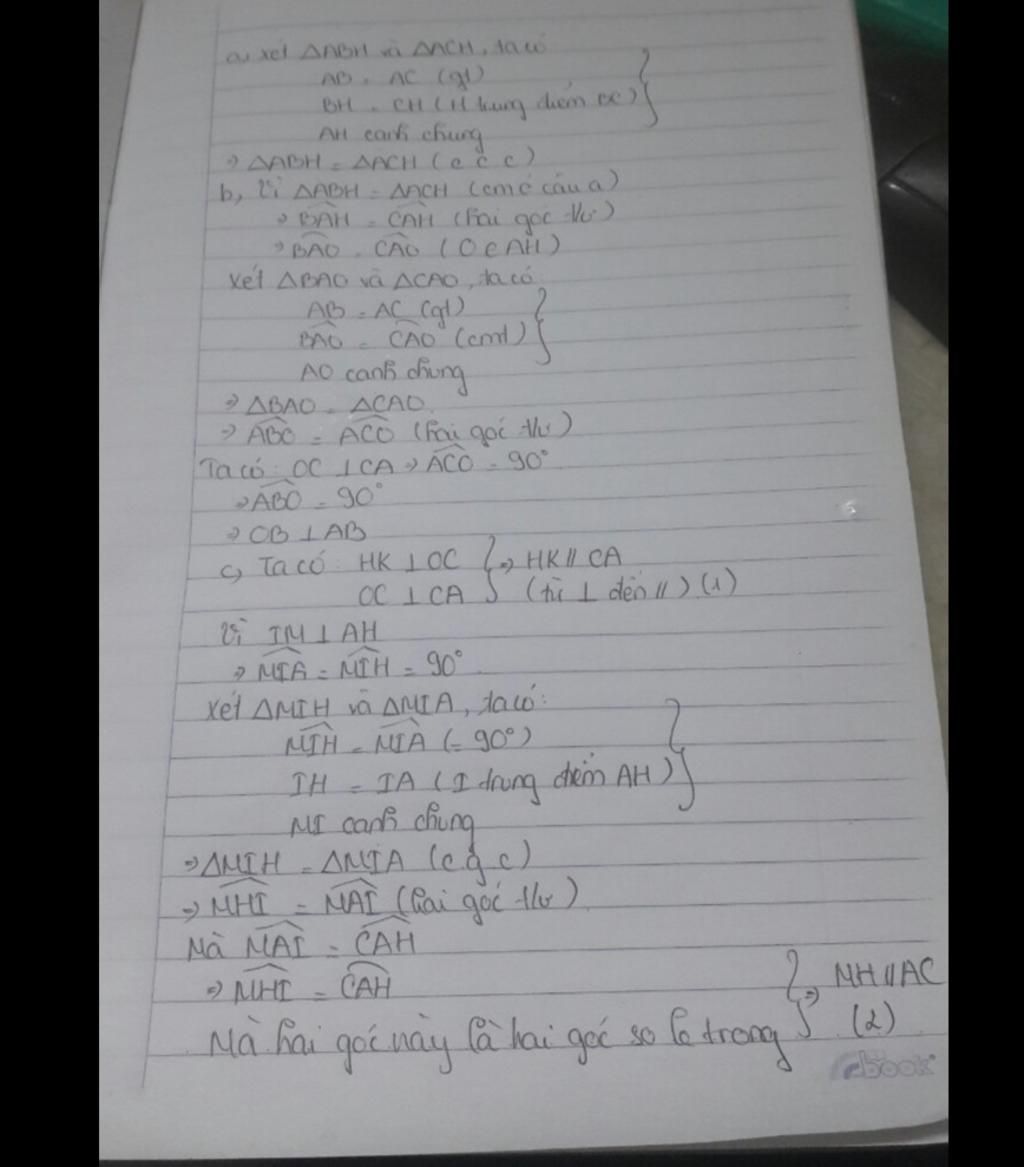 a, xét ΔABH và ΔACH, ta có
AB = AC (gt)
BH = CH (H trung điểm BC) }
AH cạnh chung
⇒ ΔABH = ΔACH (c c c)
b, Vì ΔABH = ΔACH (cm ở câu a)
⇒ BAH^ = CAH^ (hai góc tư)
⇒ BAO^ = CAO^ (O ∈ AH)
Xét ΔBAO và ΔCAO, ta có
AB = AC (gt)
BAO^ = CAO^ (cmt) }
AO cạnh chung
⇒ ΔBAO = ΔCAO
⇒ ABO^ = ACO^ (hai góc tư)
Ta có: OC ⊥ CA ⇒ ACO^ = 90°
⇒ ABO^ = 90°
⇒ OB ⊥ AB
c, Ta có: HK ⊥ OC } ⇒ HK // CA
OC ⊥ CA (từ ⊥ đến //) (1)
Vì IM ⊥ AH
⇒ MIA^ = MIH^ = 90°
Xét ΔMIH và ΔMIA, ta có:
MIH^ = MIA^ (= 90°)
IH = IA (I trung điểm AH) }
MI cạnh chung
⇒ ΔMIH = ΔMIA (c g c)
⇒ MHI^ = MAI^ (hai góc tư)
Mà MAI^ = CAH^
⇒ MHI^ = CAH^ } ⇒ MH // AC
Mà hai góc này là hai góc so le trong (2)
book